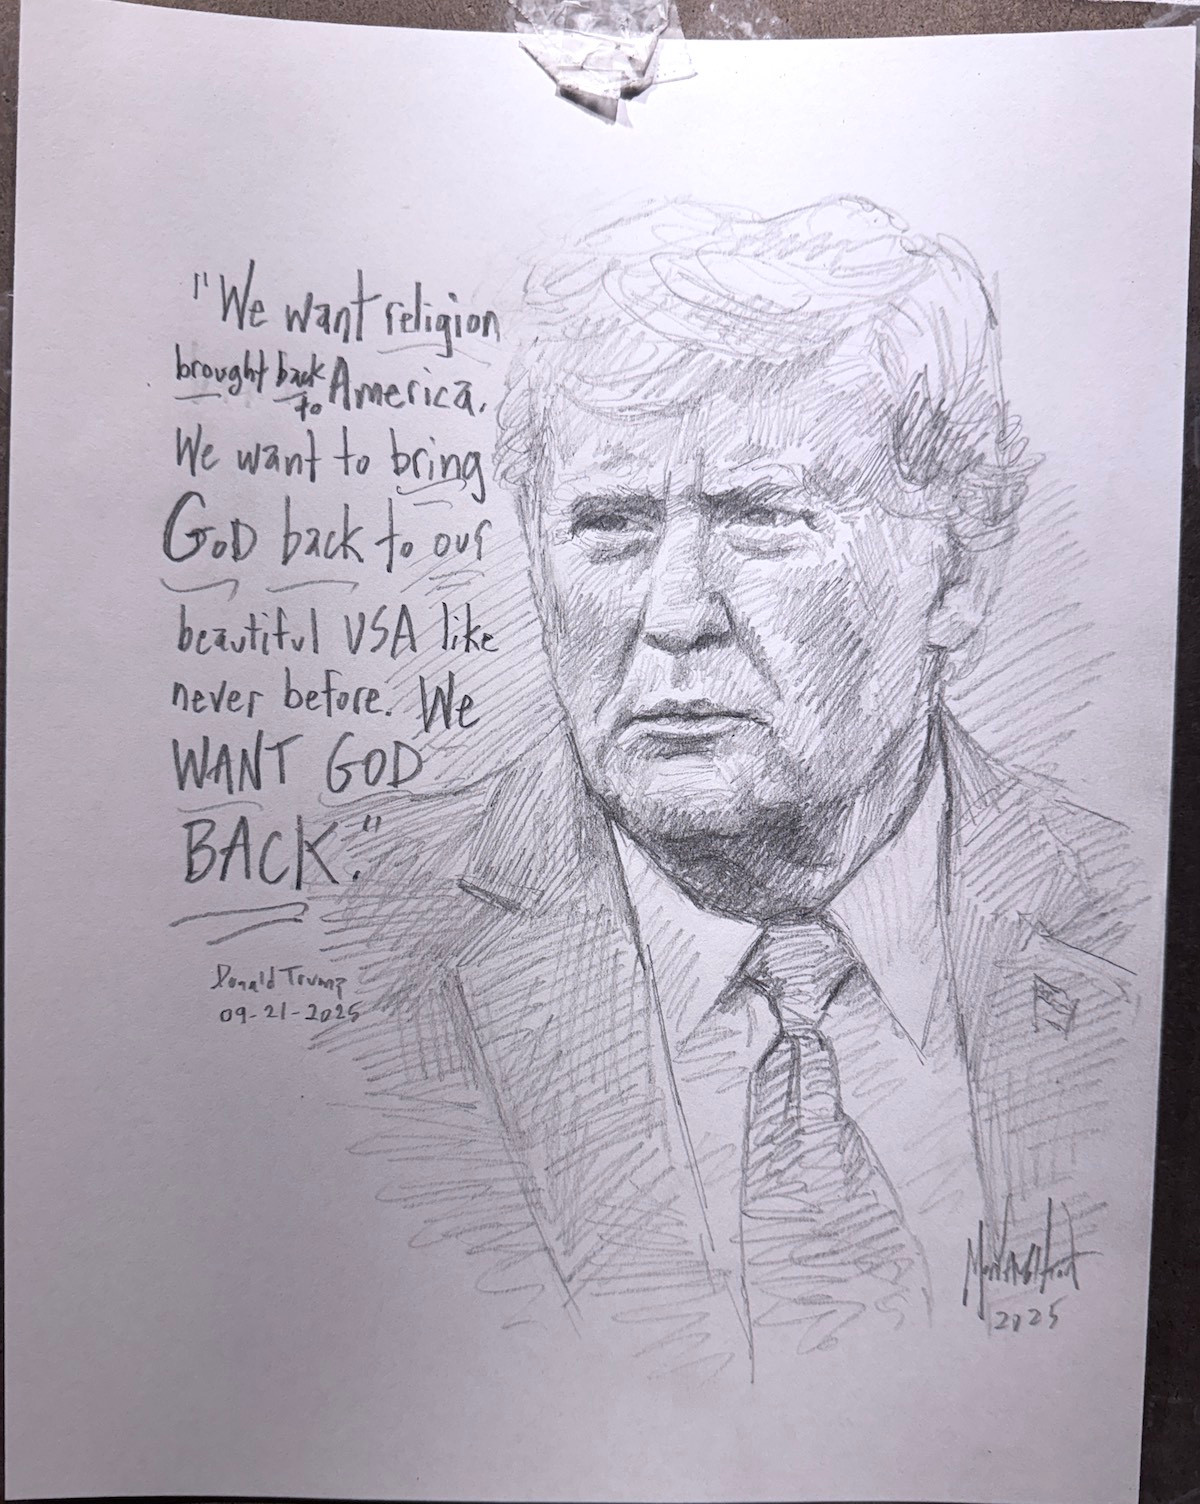 "We want religion
brought back to America.
We want to bring
GOD back to our
beautiful USA like
never before. We
WANT GOD
BACK."
Donald Trump
09-21-2025
2025